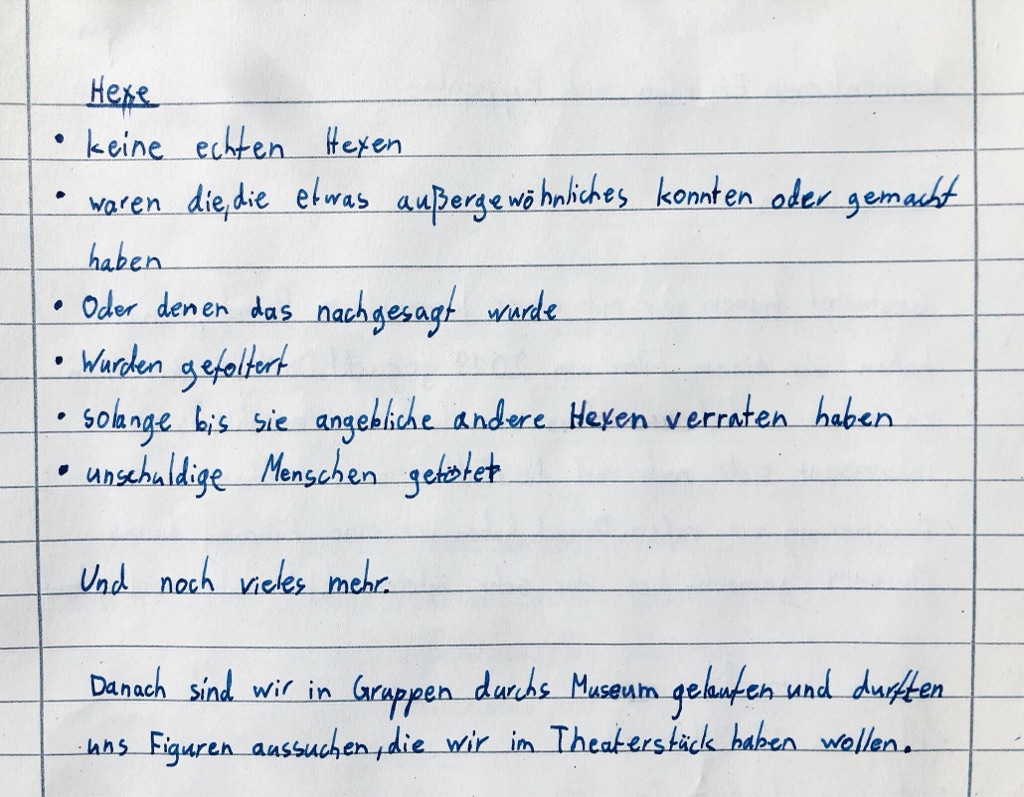 Hexe
• keine echten Hexen
• waren die, die etwas außergewöhnliches konnten oder gemacht
haben
• Oder denen das nachgesagt wurde
• Wurden gefoltert
• solange bis sie angebliche andere Hexen verraten haben
• unschuldige Menschen getötet
Und noch vieles mehr.
Danach sind wir in Gruppen durchs Museum gelaufen und durften
uns Figuren aussuchen, die wir im Theaterstück haben wollen.